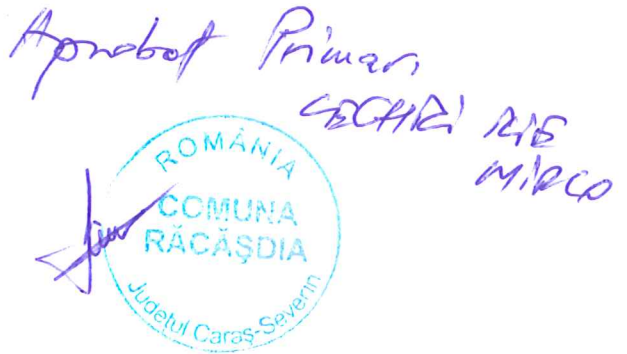 Aprobat Primar,
MIRCO
ROMÂNIA
COMUNA
RĂCĂȘDIA
Județul Caraș-Severin